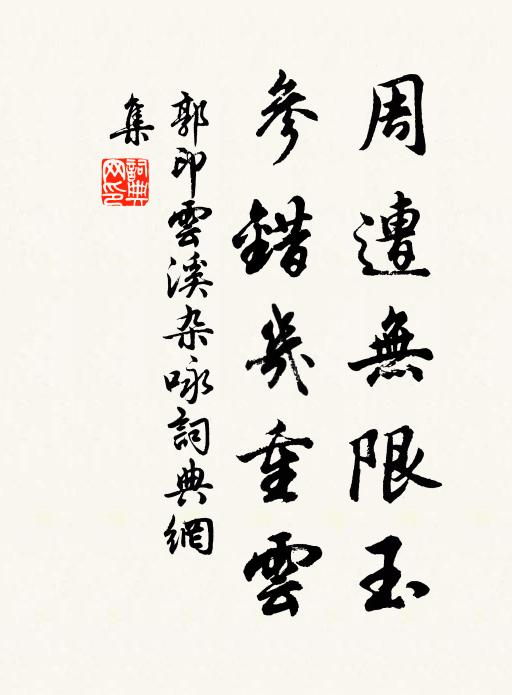 周遭無限玉
參錯幾重雲
郭印雲溪杂咏詞典網
集
詞典
网印